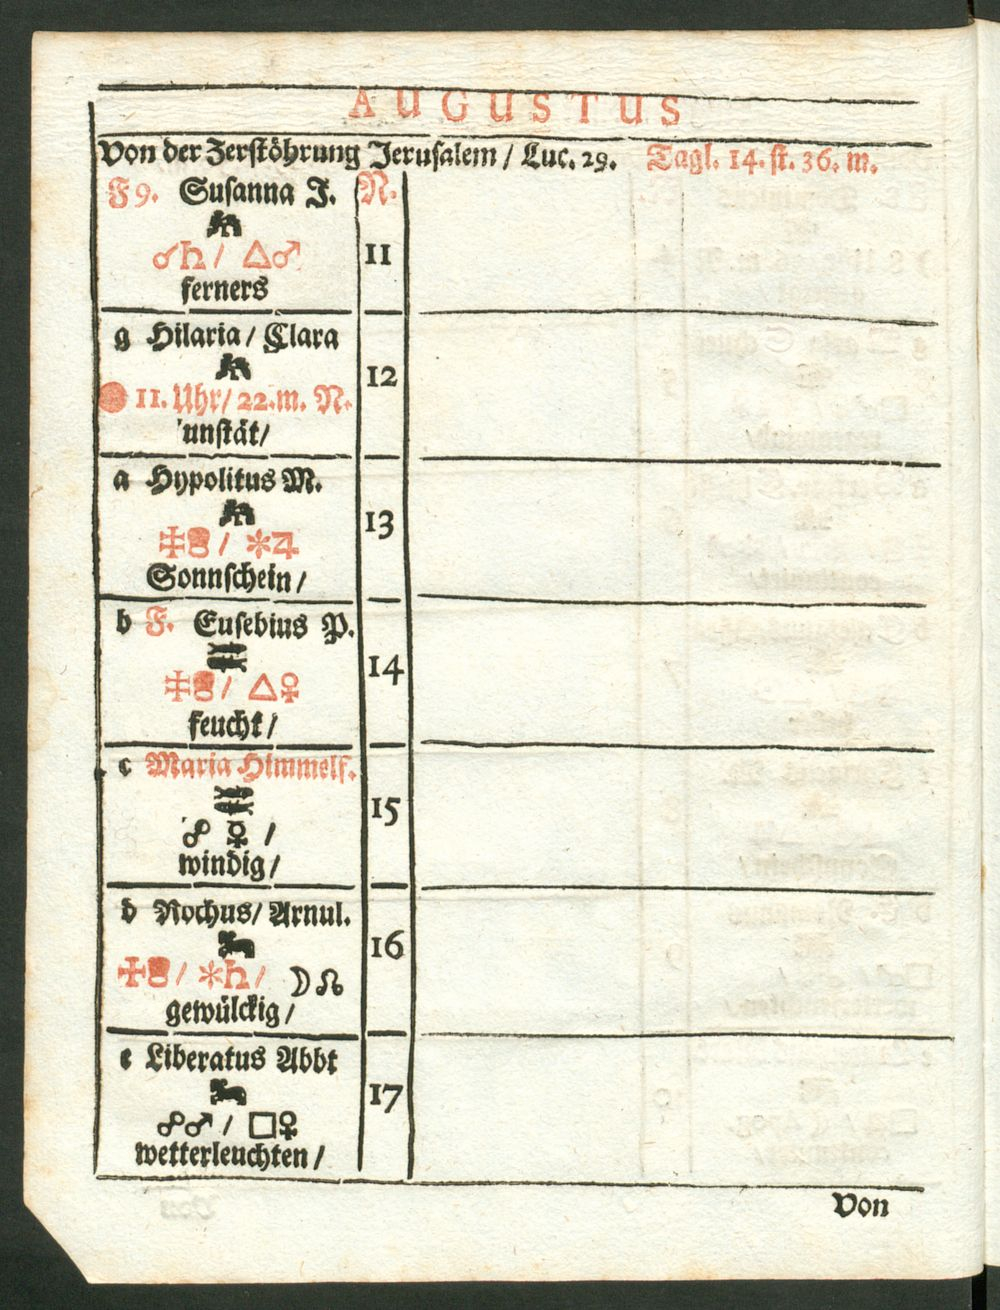 AUGUSTUS
Von der Zerstöhrung Jerusalem / Luc. 29. Tagl. 14. st. 36. m.
F 9. Susanna J. N.
☌♄ / △♂ 11
ferners
g Hilaria / Clara
12
11. Uhr / 22. m. N.
unstät /
a Hypolitus M.
13
/ ✻♃
Sonnschein /
b F. Eusebius P.
14
/ △♀
feucht /
c Maria Himmelf.
15
☍ ☿ /
windig /
d Rochus / Arnul.
16
/ ✻♄ / ☽☊
gewülckig /
e Liberatus Abbt
17
☍♂ / □♀
wetterleuchten /
Von